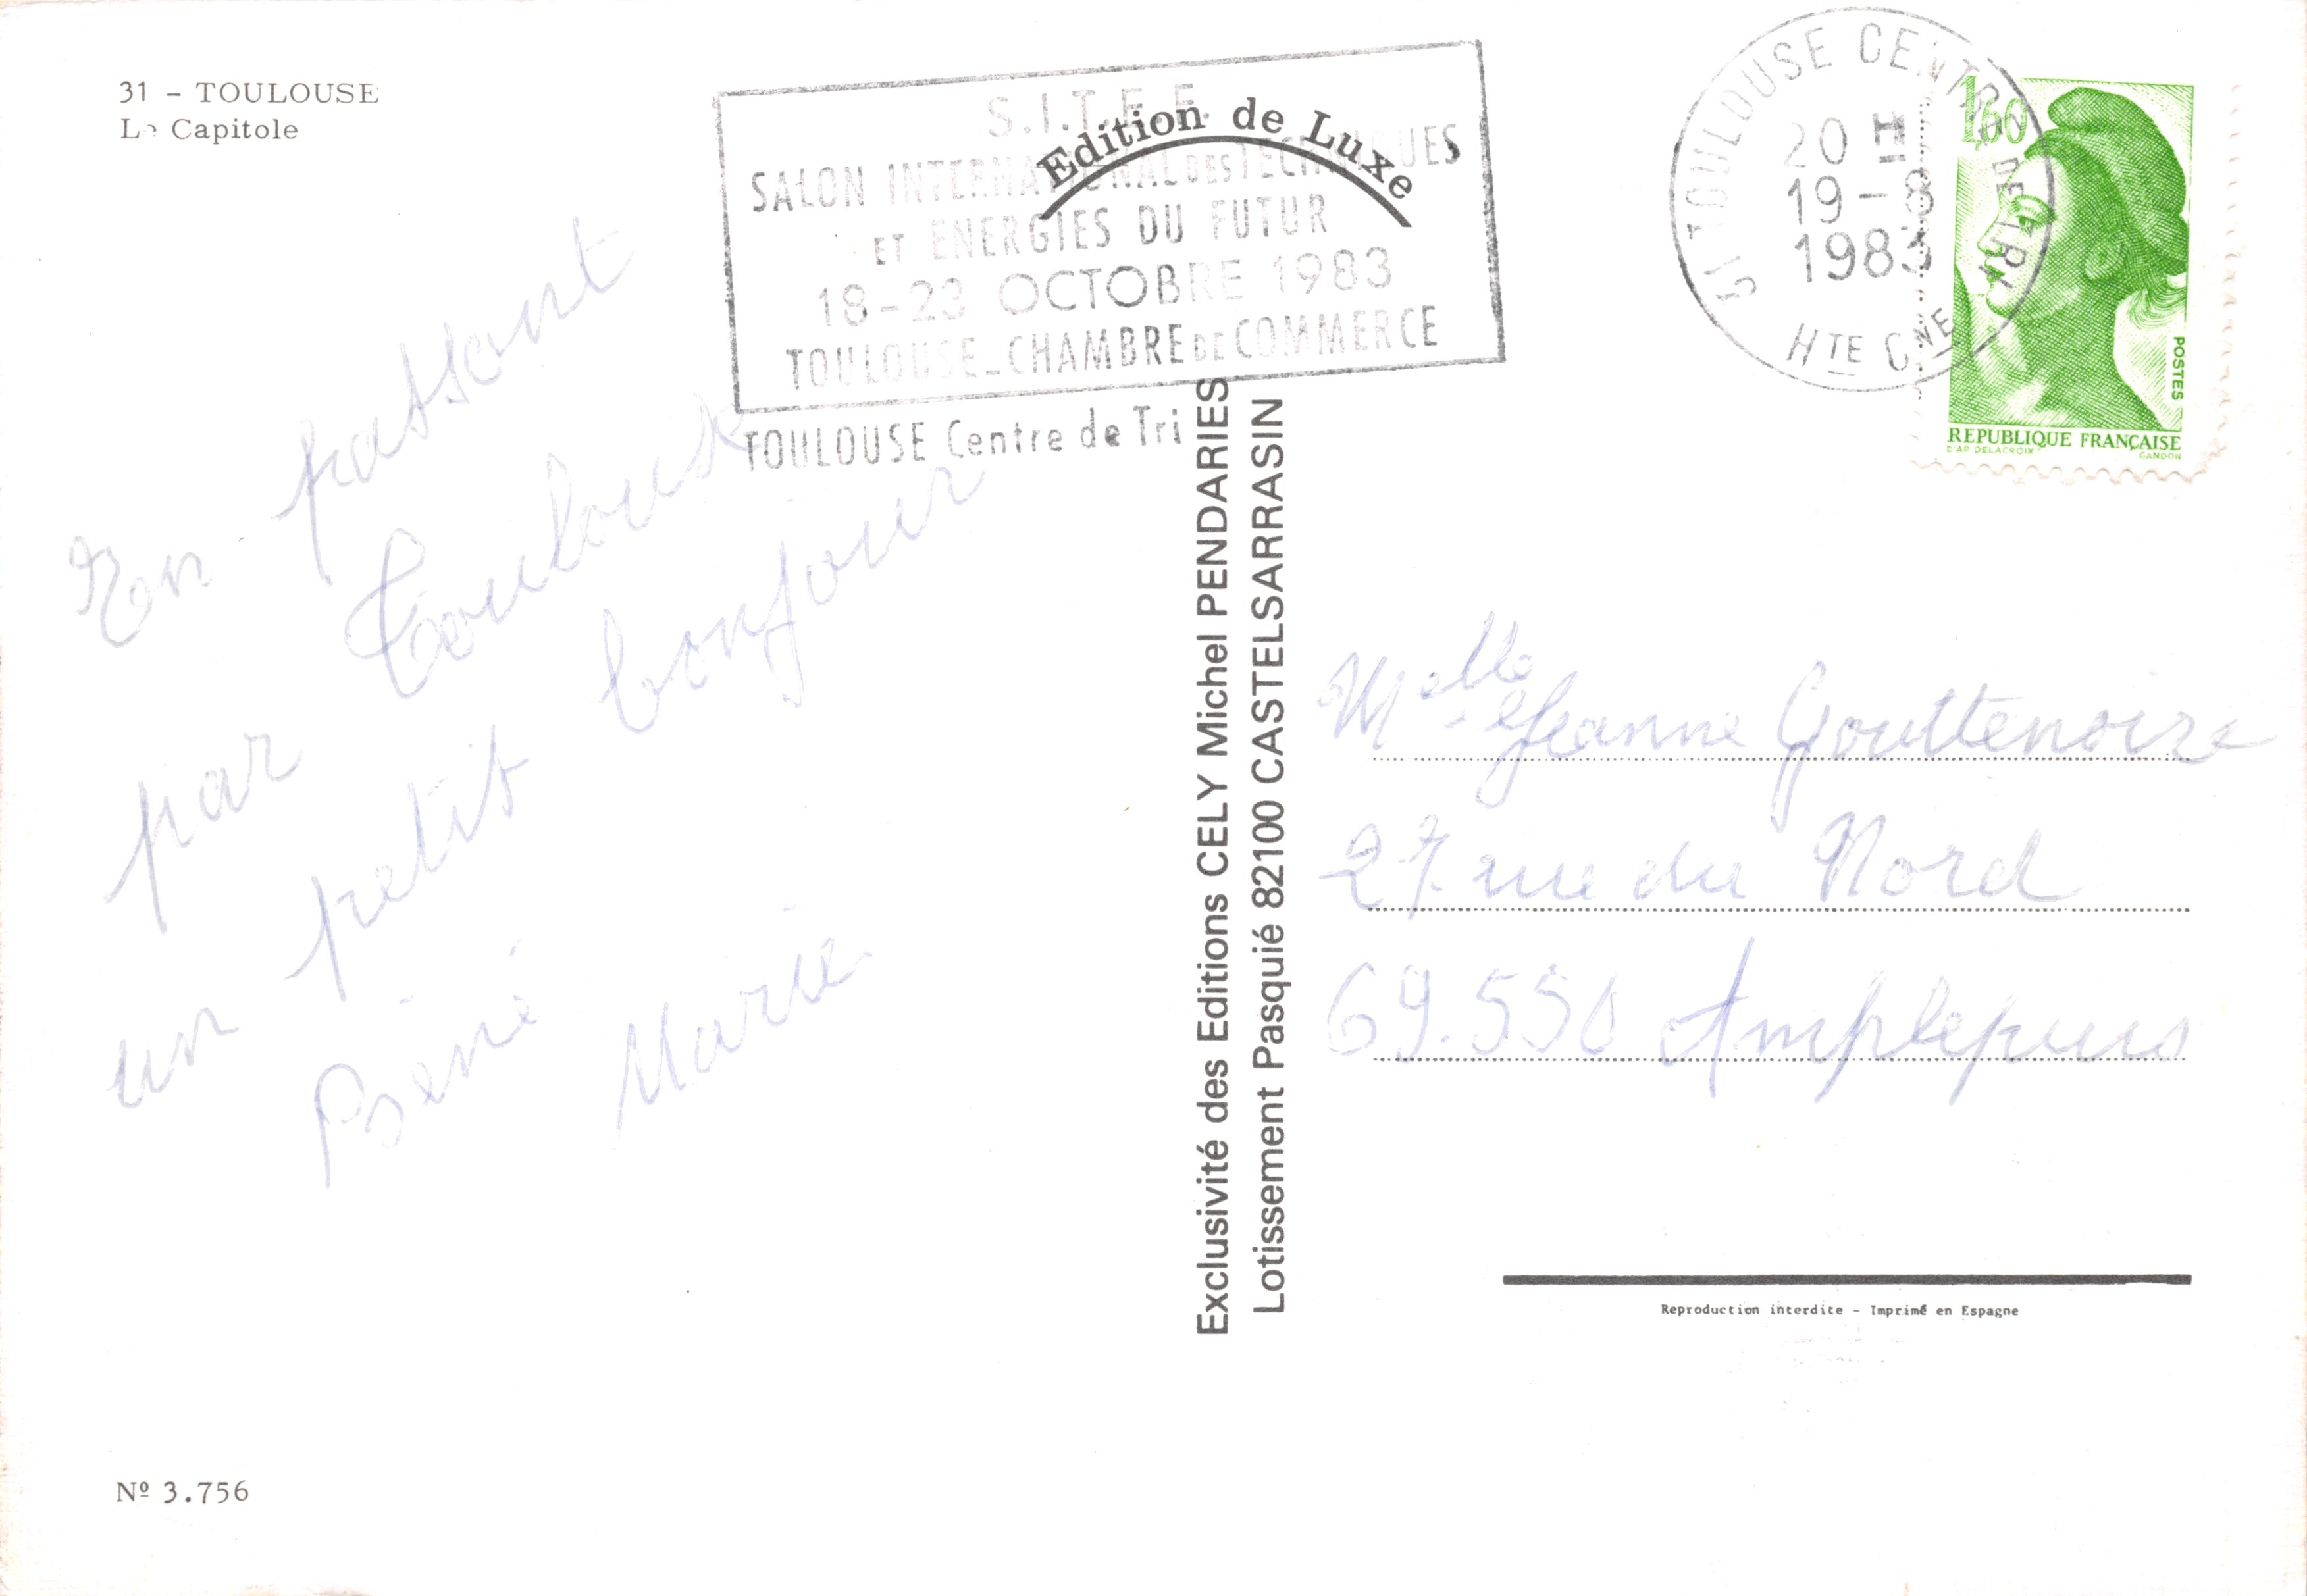 31 - TOULOUSE
Le Capitole
S.I.T.E.F.
SALON INTERNATIONAL DES TECHNIQUES
ET ENERGIES DU FUTUR
18-23 OCTOBRE 1983
TOULOUSE_CHAMBRE DE COMMERCE
TOULOUSE Centre de Tri
Edition de Luxe
31 TOULOUSE CENTRE DE TRI
20 H
19-8
1983
HTE GNE
1,60
POSTES
REPUBLIQUE FRANÇAISE
D'AP DELACROIX
GANDON
En passant
par Toulouse
un petit bonjour
Marie
Exclusivité des Editions CELY Michel PENDARIES
Lotissement Pasquié 82100 CASTELSARRASIN
Melle Jeanne Gouttenoire
27 rue du Nord
69.550 Amplepuis
Reproduction interdite - Imprimé en Espagne
Nº 3.756